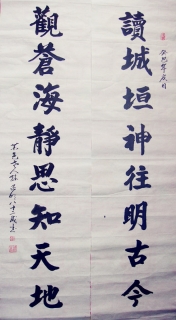 讀城垣神往明古今
觀蒼海靜思知天地